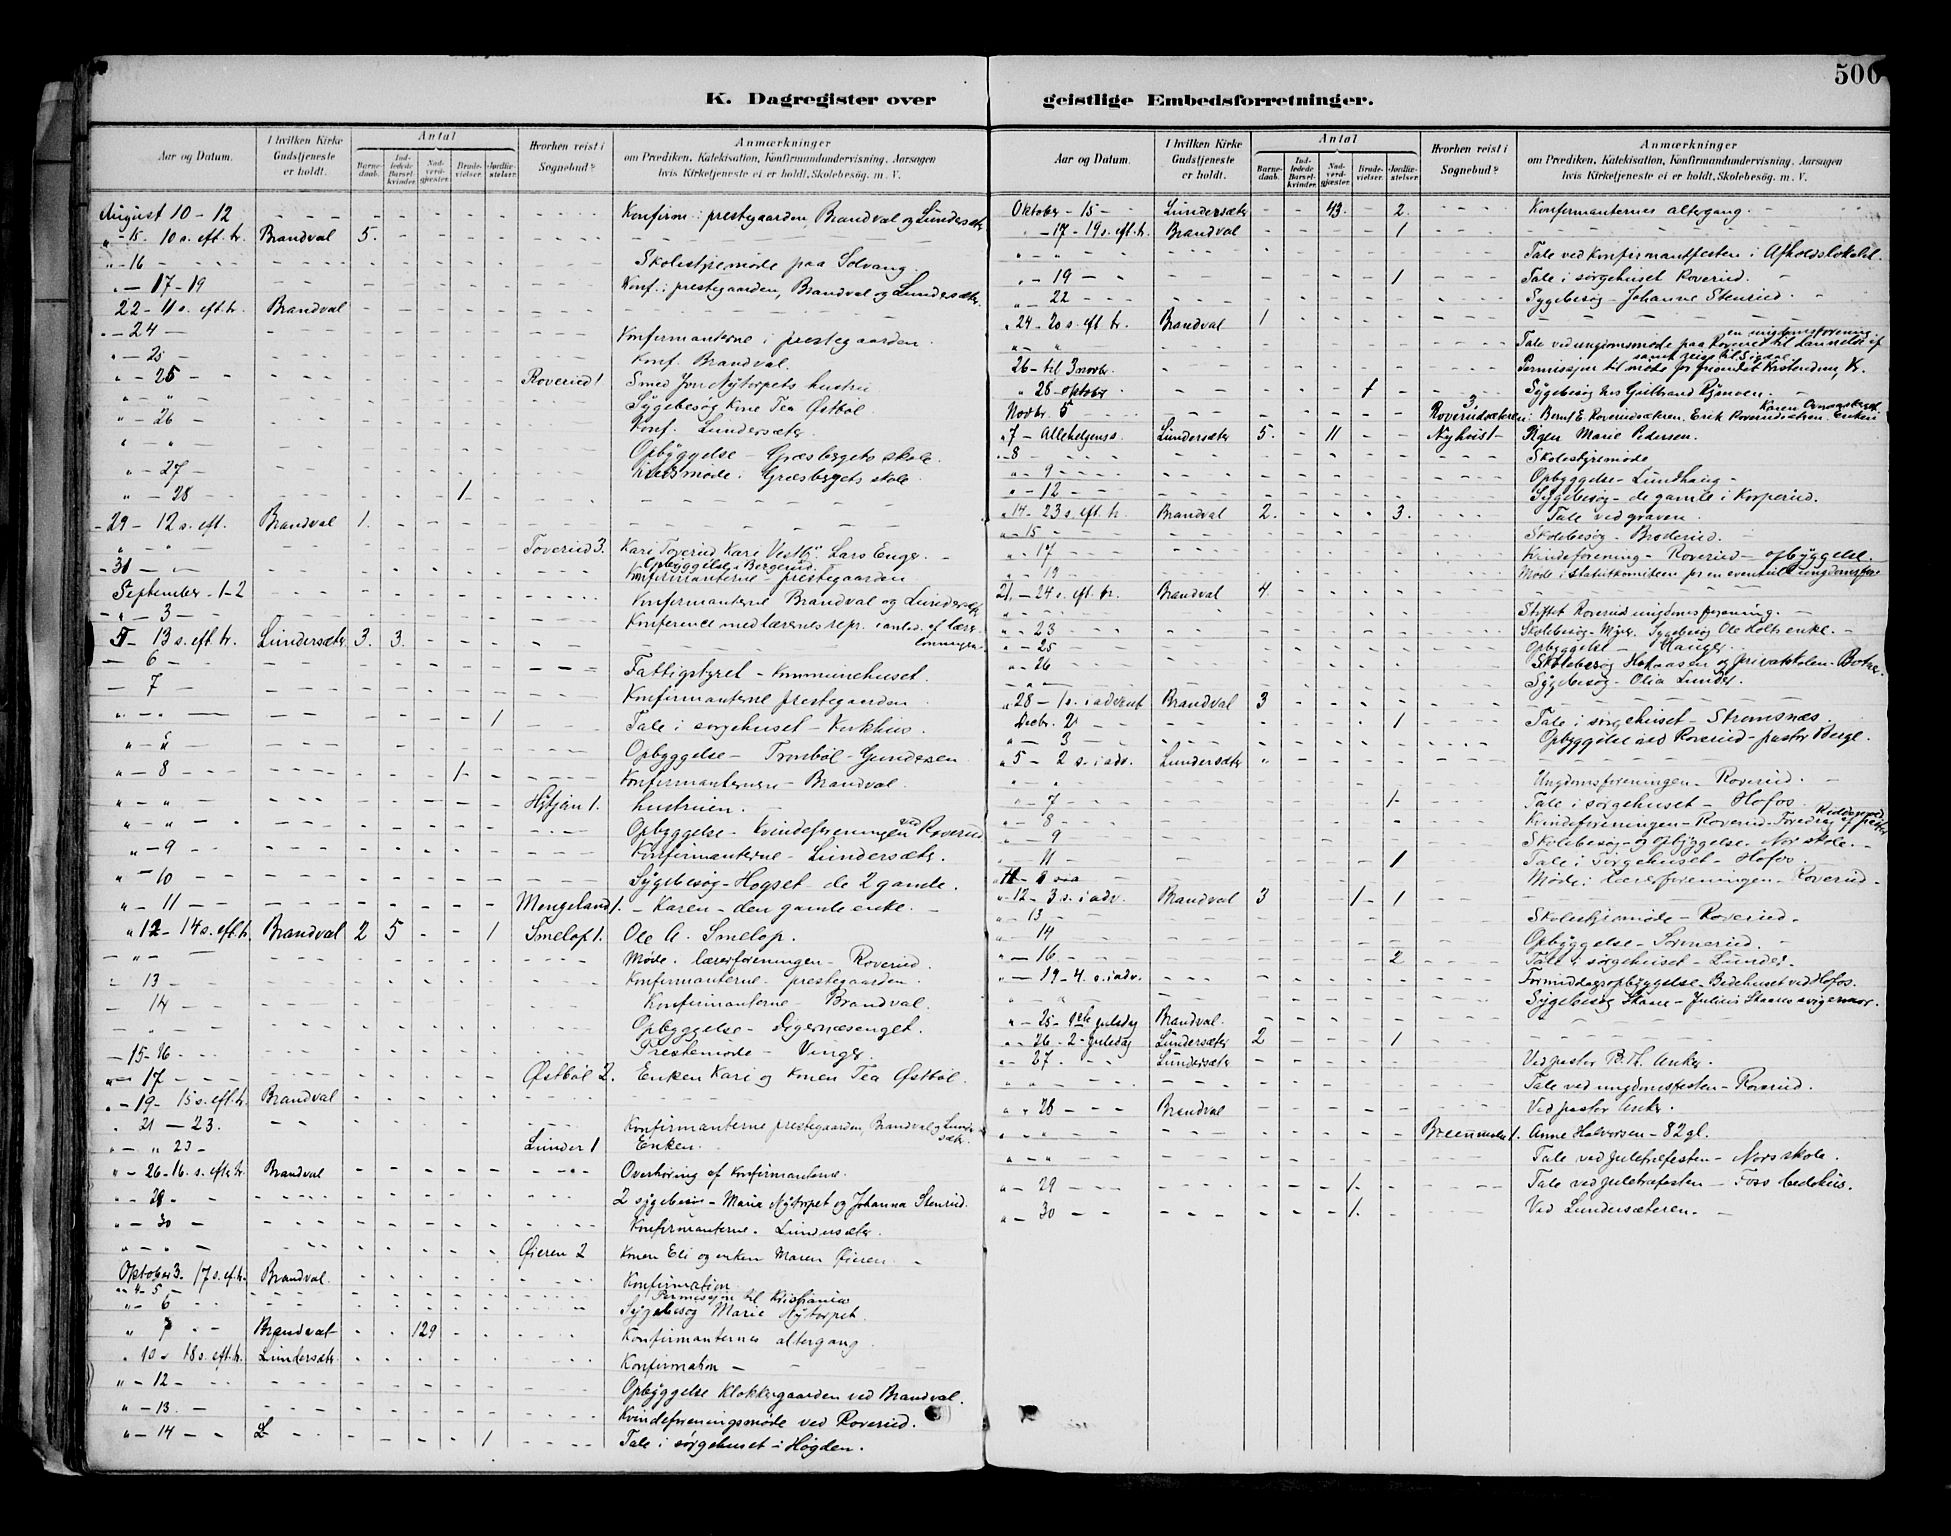 500
K. Dagregister over geistlige Embedsforretninger.
Aar og Datum. I hvilken Kirke Gudstjeneste er holdt. Antal Barnedaab. Indledede Barselkvinder. Nadverdgjæster. Brudevielser. Jordfæstelser. Hvorhen reist i Sognebud? Anmærkninger om Prædiken, Katekisation, Konfirmandundervisning, Aarsagen hvis Kirketjeneste ei er holdt, Skolebesøg. m. V.
August 10 - 12 Konfirm. i prestegaarden, Brandval og Lundersæter
" - 15. 10 s. eft. tr. Brandval 5.
" - 16 Skolestyremøde paa Solvang.
" - 17 - 19 Konf. i prestegaarden, Brandval og Lundersæter.
22 - 11 s. eft. tr. Brandval
" - 24 Konfirmanterne i prestegaarden.
" - 25 Konf. Brandval.
" - 25 Roverud 1 Smed Jon Nytorpets hustru
" " Sygebesøg Kone Tea Østbøl
" - 26 Konf. Lundersæter.
" - " Opbyggelse - Græsbergets skole.
" - 27 møde i Græsbergets skole.
" - 28 1
- 29 - 12 s. eft. Brandval 1.
" - " Toverud 3. Kari Toverud Kari Vestby Lars Enger.
Opbyggelse i Bergerud.
- 31 Konfirmanterne - prestegaarden
September - 1-2 Konfirmanterne Brandval og Lundersæter
- " - 3 Konference med lærernes repr. i anled. af lærerlønningen.
5 - 13 s. eft. tr. Lundersæter 3. 3.
- 6 Fattigstyret - Kommunehuset.
- 7 Konfirmanterne prestegaarden
" - " 1 Tale i sørgehuset - Kirkhus.
" - " Opbyggelse - Trønbøl - Gundersen
" - 8 1 Konfirmanterne - Brandval.
" - " 1. hustruen.
" - " Opbyggelse - Kvindeforeningen ved Roverud
" - 9 Konfirmanterne - Lundersæter.
" - 10 Sygebesøg - Hogset de 2 gamle.
" - 11 Mengeland 1. - Karen - den gamle enke.
" 12 - 14 s. eft. tr. Brandval 2 5 1 Smelop 1. Ole A. Smelop.
- " Møde i lærerforeningen - Roverud.
- 13 Konfirmanterne - prestegaarden.
- 14 Konfirmanterne - Brandval.
- " Opbyggelse - Digernæsenget.
- 15 - 16 Prestemøde - Vinger.
" - 17 Østbøl 2. Enken Kari og konen Tea Østbøl.
" - 19 - 15 s. eft. tr. Brandval
" 21 - 23. Konfirmanterne prestegaarden, Brandval og Lundersæter.
- " 23 - Lunder 1 Enken.
" - 26 - 16. s. eft. tr. Brandval Overhøring af konfirmanterne.
" - 28 2 sygebesøg - Maria Nytorpet og Johanna Stenrud.
" - 30 Konfirmanterne. Lundersæter.
" - " Øieren 2 Konen Eli og enken Maren Øieren
Oktober 3. 17 s. eft. Brandval. Konfirmation.
" 4 - 5 Permission til Kristiania
" - 6 Sygebesøg Marie Nytorpet.
" 7 Brandval 129 Konfirmanternes altergang
" 10 - 18 s. eft. tr. Lundersæter. Konfirmation -
" - 12 - Opbyggelse Klokkergaarden ved Brandval.
" - 13. Kvindeforeningsmøde ved Roverud.
" - 14 L 1 Tale i sørgehuset i Høgden.
Aar og Datum. I hvilken Kirke Gudstjeneste er holdt. Antal Barnedaab. Indledede Barselkvinder. Nadverdgjæster. Brudevielser. Jordfæstelser. Hvorhen reist i Sognebud? Anmærkninger om Prædiken, Katekisation, Konfirmandundervisning, Aarsagen hvis Kirketjeneste ei er holdt, Skolebesøg. m. V.
Oktober - 15 - Lundersæter 43. 2. Konfirmanternes altergang.
" - 17 - 19 s. eft. tr. Brandval 1
" " Tale ved Konfirmantfesten i Afholdslokalet.
" - 19 1 Tale i sørgehuset Roverud.
" - 22 Sygebesøg - Johanne Stenrud.
" 24 - 20 s. eft. tr. Brandval 1
" " Tale ved ungdomsmøde paa Roverud til dannelse af en ungdomsforening.
26 - til 3 novbr. Permission til møde for frivilligt Kristendom, Kr. samt reise til Sigdal
" 28 oktober 1 Sygebesøg hos Gulbrand
Novbr 5 Roverudsæteren 3. Bernt E. Roverudsæteren, Erik Roverudsæteren Enken Karen
" 7 - Allehelgens. Lundersæter 5. 11 Nyhus 1 - Pigen Marie Pedersen.
- 8 Skolestyremøde
" - 9 Opbyggelse - Lundhaug -
" - 12 Sygebesøg - de gamle i Korperud.
" 14 - 23 s. eft. tr. Brandval 2. 3. Tale ved graven.
" - 15 Skolebesøg - Broderud.
" - 17 Kvindeforening - Roverud - opbyggelse.
" - 19 Møde i statutkomiteen for en eventuel ungdomsfor.
21. - 24 s. eft. tr. Brandval 4.
" Stiftet Roverud ungdomsforening.
" - 23 Skolebesøg - Myrer. Sygebesøg Ole Holts enke. -
" - 25 Opbyggelse - Hauger.
" - 26 Skolebesøg Hokaasen og privatskolen - Botne.
Sygebesøg - Olia Lunder.
" 28 - 1 s. i advent Brandval 3
Decbr. 2 1 Tale i sørgehuset - Strømsnæs.
" - 3 Opbyggelse ved Roverud - pastor Berge.
" 5 - 2 s. i adv. Lundersæter "
" Ungdomsforeningen - Roverud.
" - 7 1 Tale i sørgehuset - Hofos.
" - 8 Kvindeforeningen - Roverud. Foredrag af pastor
" - 9 Skolebesøg og Opbyggelse - Nor skole.
" - 11 1 Tale i Sørgehuset - Hofos.
Møde i lærerforeningen - Roverud -
" - 12 - 3 s. i adv. Brandval 3 1 1
" - 13 Skolestyremøde - Roverud.
" - 14 Opbyggelse - Sormerud.
" - 16 2 Tale i sørgehuset - Lunder.
" - 19 - 4. s. i adv. Formiddagsopbyggelse - Bedehuset ved Hofos.
" Sygebesøg Skaare - Julius Skaares svigermor.
" - 25 - 1ste juledag Brandval.
" - 26 - 2 - juledag Lundersæter 2 1
" - 27 Lundersæter Ved pastor B. Th. Anker.
" " Tale ved ungdomsfesten - Roverud.
" " 28 Brandval Ved pastor Anker.
" - " 1. Anne Halvorsen - 82 gl.
" - " Tale ved juletræfesten - Nors skole.
" - 29 1. Tale ved juletræfesten - Foss bedehus.
" - 30 1. Ved Lundersæteren. -